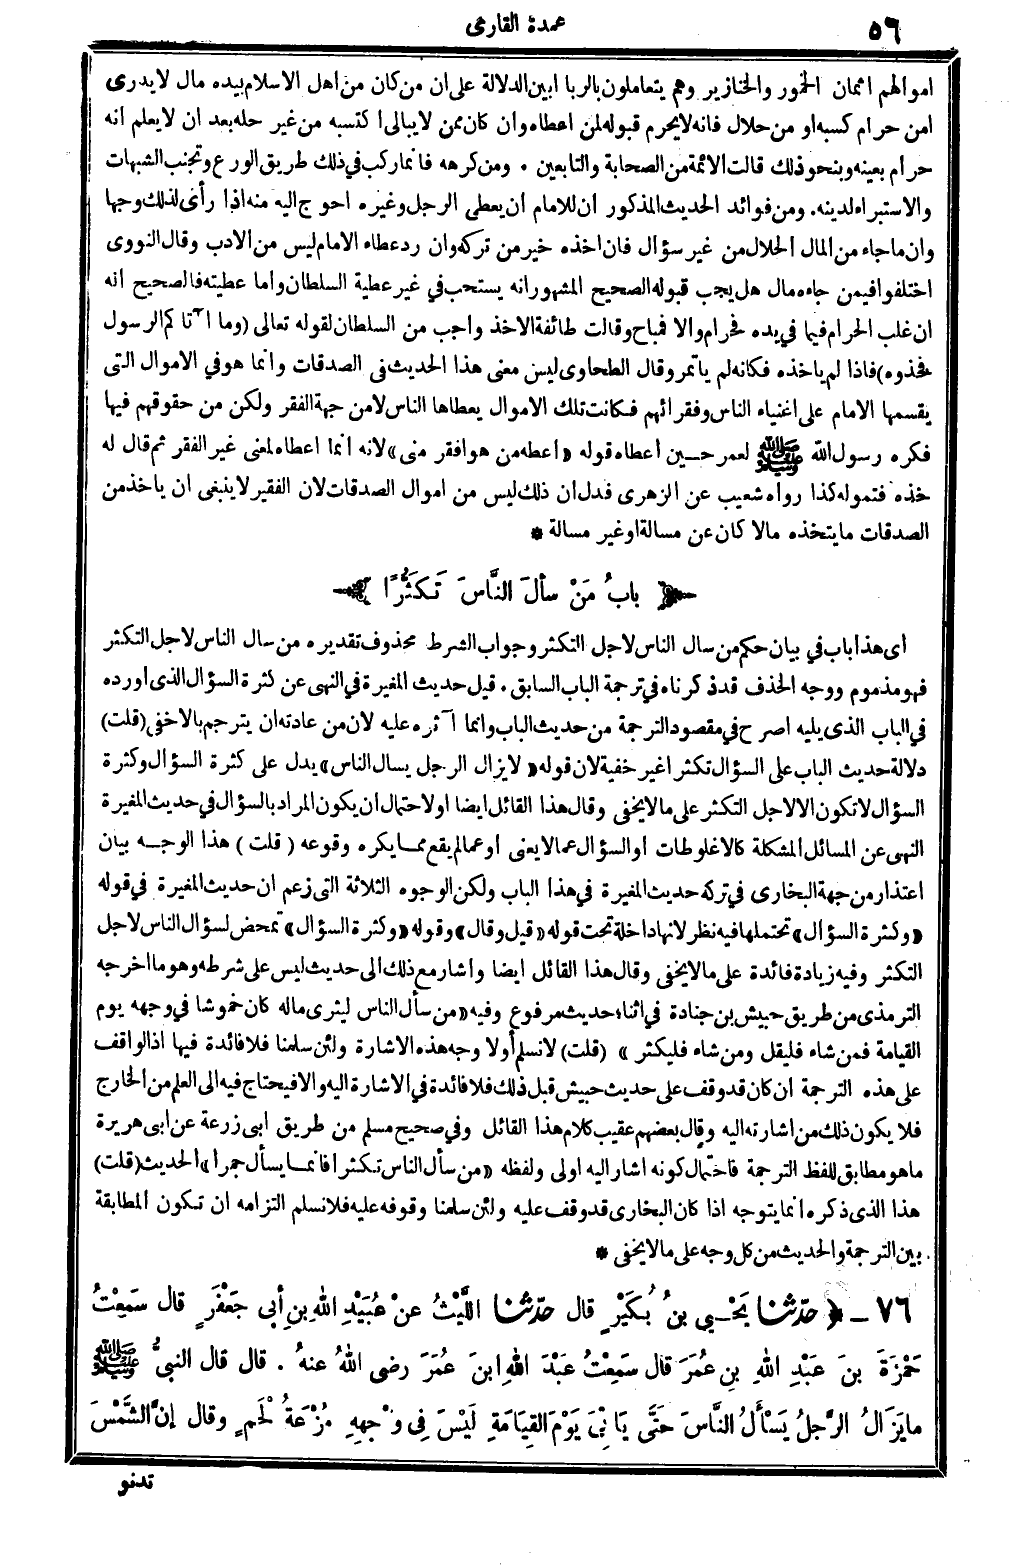 ٥٦
عمدة القارى
اموالهم اثمان الخمور والخنازير وهم يتعاملون بالربا ابين الدلالة على ان من كان من اهل الاسلام بيده مال لا يدرى
امن حرام كسبه او من حلال فانه لا يحرم قبوله لمن اعطاه وان كان ممن لا يبالى اكتسبه من غير حله بعد ان لا يعلم انه
حرام بعينه وبنحو ذلك قالت الائمة من الصحابة والتابعين . ومن كرهه فانما ركب فى ذلك طريق الورع وتجنب الشبهات
والاستبراء لدينه . ومن فوائد الحديث المذكور ان للامام ان يعطى الرجل وغيره احوج اليه منه اذا رأى لذلك وجها
وان ما جاء من المال الحلال من غير سؤال فان اخذه خير من تركه وان رد عطاء الامام ليس من الادب وقال النووى
اختلفوا فيمن جاءه مال هل يجب قبوله الصحيح المشهور انه يستحب في غير عطية السلطان واما عطيته فالصحيح انه
ان غلب الحرام فيما في يده فحرام والا فمباح وقالت طائفة الاخذ واجب من السلطان لقوله تعالى (وما آتاكم الرسول
فخذوه) فاذا لم ياخذه فكانه لم ياتمر وقال الطحاوى ليس معنى هذا الحديث فى الصدقات وانما هو في الاموال التى
يقسمها الامام على اغنياء الناس وفقرائهم فكانت تلك الاموال يعطاها الناس لا من جهة الفقر ولكن من حقوقهم فيها
فكره رسول الله ﷺ لعمر حين أعطاه قوله «أعطه من هو افقر منى» لانه انما اعطاه لمعنى غير الفقر ثم قال له
خذه فتموله كذا رواه شعيب عن الزهرى فدل ان ذلك ليس من اموال الصدقات لان الفقير لا ينبغى ان ياخذ من
الصدقات ما يتخذه مالا كان عن مسالة او غير مسالة *
﴿ بابُ مَنْ سألَ النَّاسَ تَكَثُّرًا ﴾
أى هذا باب في بيان حكم من سال الناس لاجل التكثر وجواب الشرط محذوف تقديره من سال الناس لاجل التكثر
فهو مذموم ووجه الحذف قد ذكرناه في ترجمة الباب السابق . قيل حديث المغيرة في النهى عن كثرة السؤال الذى اورده
في الباب الذى يليه اصرح في مقصود الترجمة من حديث الباب وانما آثره عليه لان من عادته ان يترجم بالاخفى (قلت)
دلالة حديث الباب على السؤال تكثرا غير خفية لان قوله «لا يزال الرجل يسال الناس» يدل على كثرة السؤال وكثرة
السؤال لا تكون الا لاجل التكثر على ما لا يخفى وقال هذا القائل ايضا او لاحتمال ان يكون المراد بالسؤال في حديث المغيرة
النهى عن المسائل المشكلة كالاغلوطات أو السؤال عما لا يعنى أو عما لم يقع مما يكره وقوعه ( قلت ) هذا الوجه بيان
اعتذار من جهة البخارى في تركه حديث المغيرة في هذا الباب ولكن الوجوه الثلاثة التى زعم ان حديث المغيرة في قوله
«وكثرة السؤال» تحتملها فيه نظر لانها داخلة تحت قوله «قيل وقال» وقوله «وكثرة السؤال» تمحض لسؤال الناس لاجل
التكثر وفيه زيادة فائدة على ما لا يخفى وقال هذا القائل ايضا واشار مع ذلك الى حديث ليس على شرطه وهو ما اخرجه
الترمذى من طريق حبيش بن جنادة في اثناء حديث مرفوع وفيه «من سأل الناس ليثرى ماله كان خموشا في وجهه يوم
القيامة فمن شاء فليقل ومن شاء فليكثر » (قلت) لا نسلم أولا وجه هذه الاشارة ولئن سلمنا فلا فائدة فيها اذ الواقف
على هذه الترجمة ان كان قد وقف على حديث حبيش قبل ذلك فلا فائدة في الاشارة اليه والا فيحتاج فيه الى العلم من الخارج
فلا يكون ذلك من اشارته اليه وقال بعضهم عقيب كلام هذا القائل وفي صحيح مسلم من طريق ابى زرعة عن ابى هريرة
ما هو مطابق للفظ الترجمة فاحتمال كونه اشار اليه اولى ولفظه «من سأل الناس تكثرا فانما يسأل جمرا» الحديث (قلت)
هذا الذى ذكره انما يتوجه اذا كان البخارى قد وقف عليه ولئن سلمنا وقوفه عليه فلا نسلم التزامه ان تكون المطابقة
بين الترجمة والحديث من كل وجه على ما لا يخفى *
٧٦ ـ ﴿ حدّثنا يَحْيى بنُ بُكَيْرٍ قال حدّثنا اللَّيْثُ عنْ عُبَيْدِ اللهِ بنِ أبى جَعْفَرٍ قال سَمِعْتُ
حَمْزَةَ بنَ عَبْدِ اللهِ بنِ عُمَرَ قال سَمِعْتُ عَبْدَ اللهِ ابنَ عُمَرَ رضى اللهُ عنهُ . قال قال النبىُّ ﷺ
ما يَزَالُ الرَّجلُ يَسْأَلُ النَّاسَ حَتَّى يَاتِىَ يَوْمَ القِيَامَةِ لَيْسَ فِى وجْهِهِ مُزْعَةُ لَحْمٍ وقال إنَّ الشَّمْسَ
تدنو